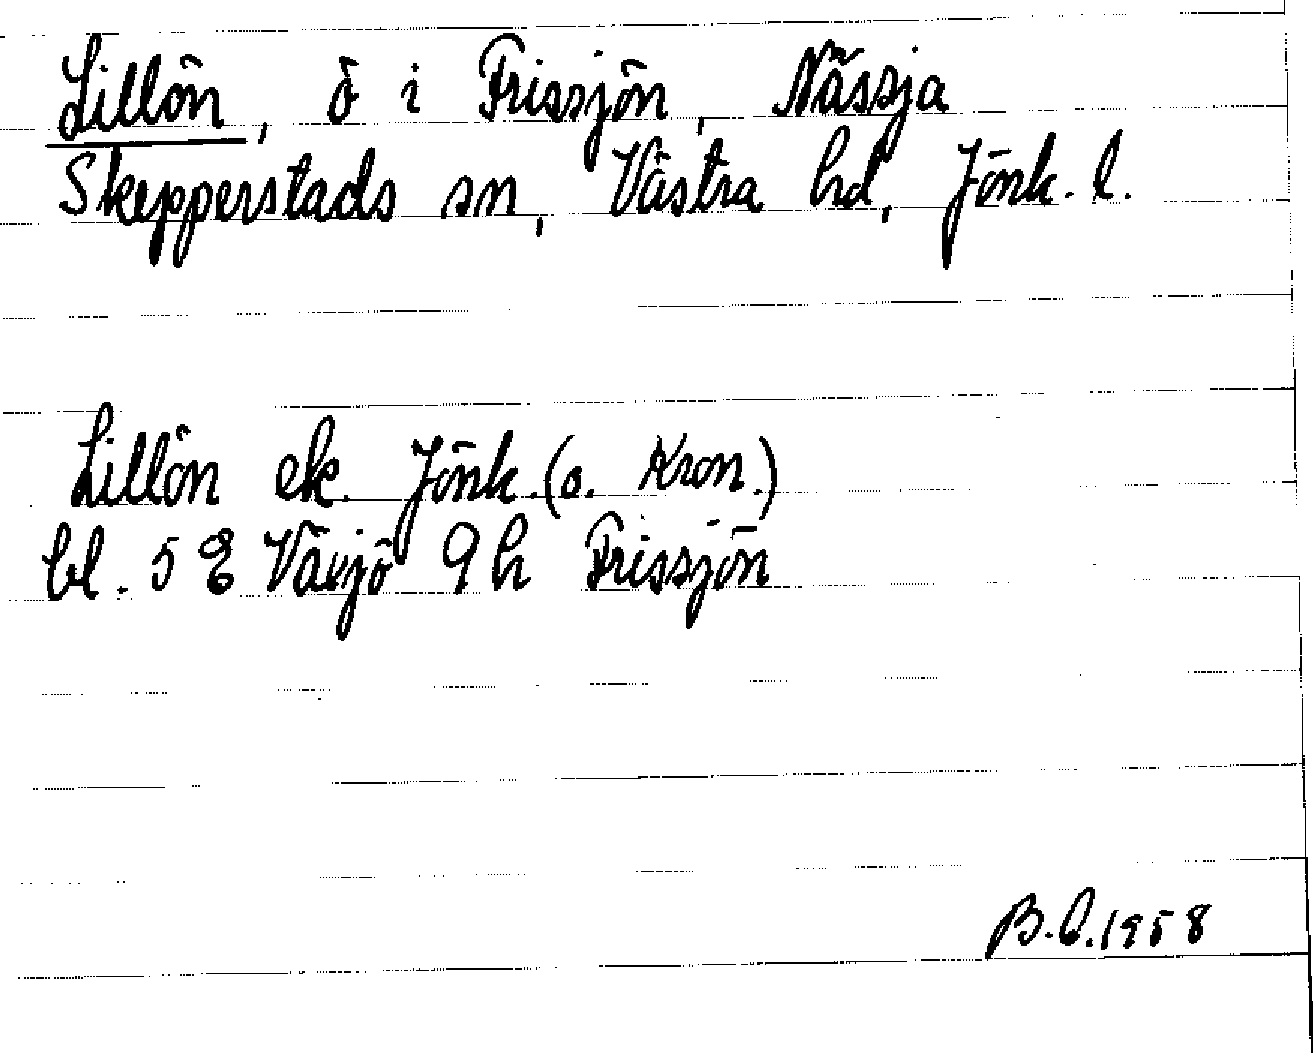 Lillön, ö i Frissjön, Nässja
Skepperstads sn, Västra hd, Jönk. l.
Lillön ek. Jönk. (o. Kron.)
bl. 5 E Växjö 9 h Frissjön
B.L. 1958